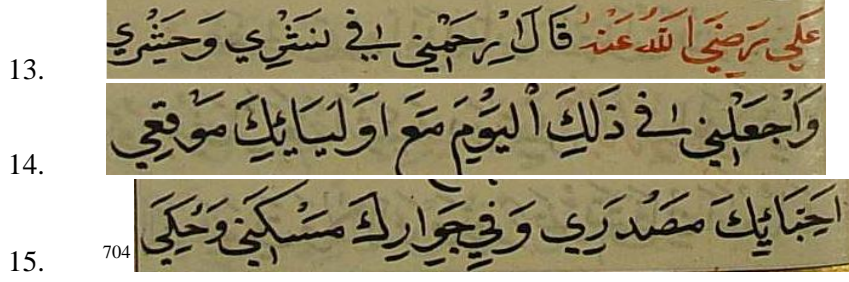 13. عَلِي رَضِيَ اللّٰهُ عَنْهُ قَالَ اِرْحَمْنِي فِي نَشْرِي وَحَشْرِي
14. وَاجْعَلْنِي فِي ذَلِكَ الْيَوْمِ مَعَ اَوْلِيَائِكَ مَوْقِعِي
15. 704 اَحِبَّائِكَ مَصْدَرِي وَفِي جِوَارِكَ مَسْكَنِي